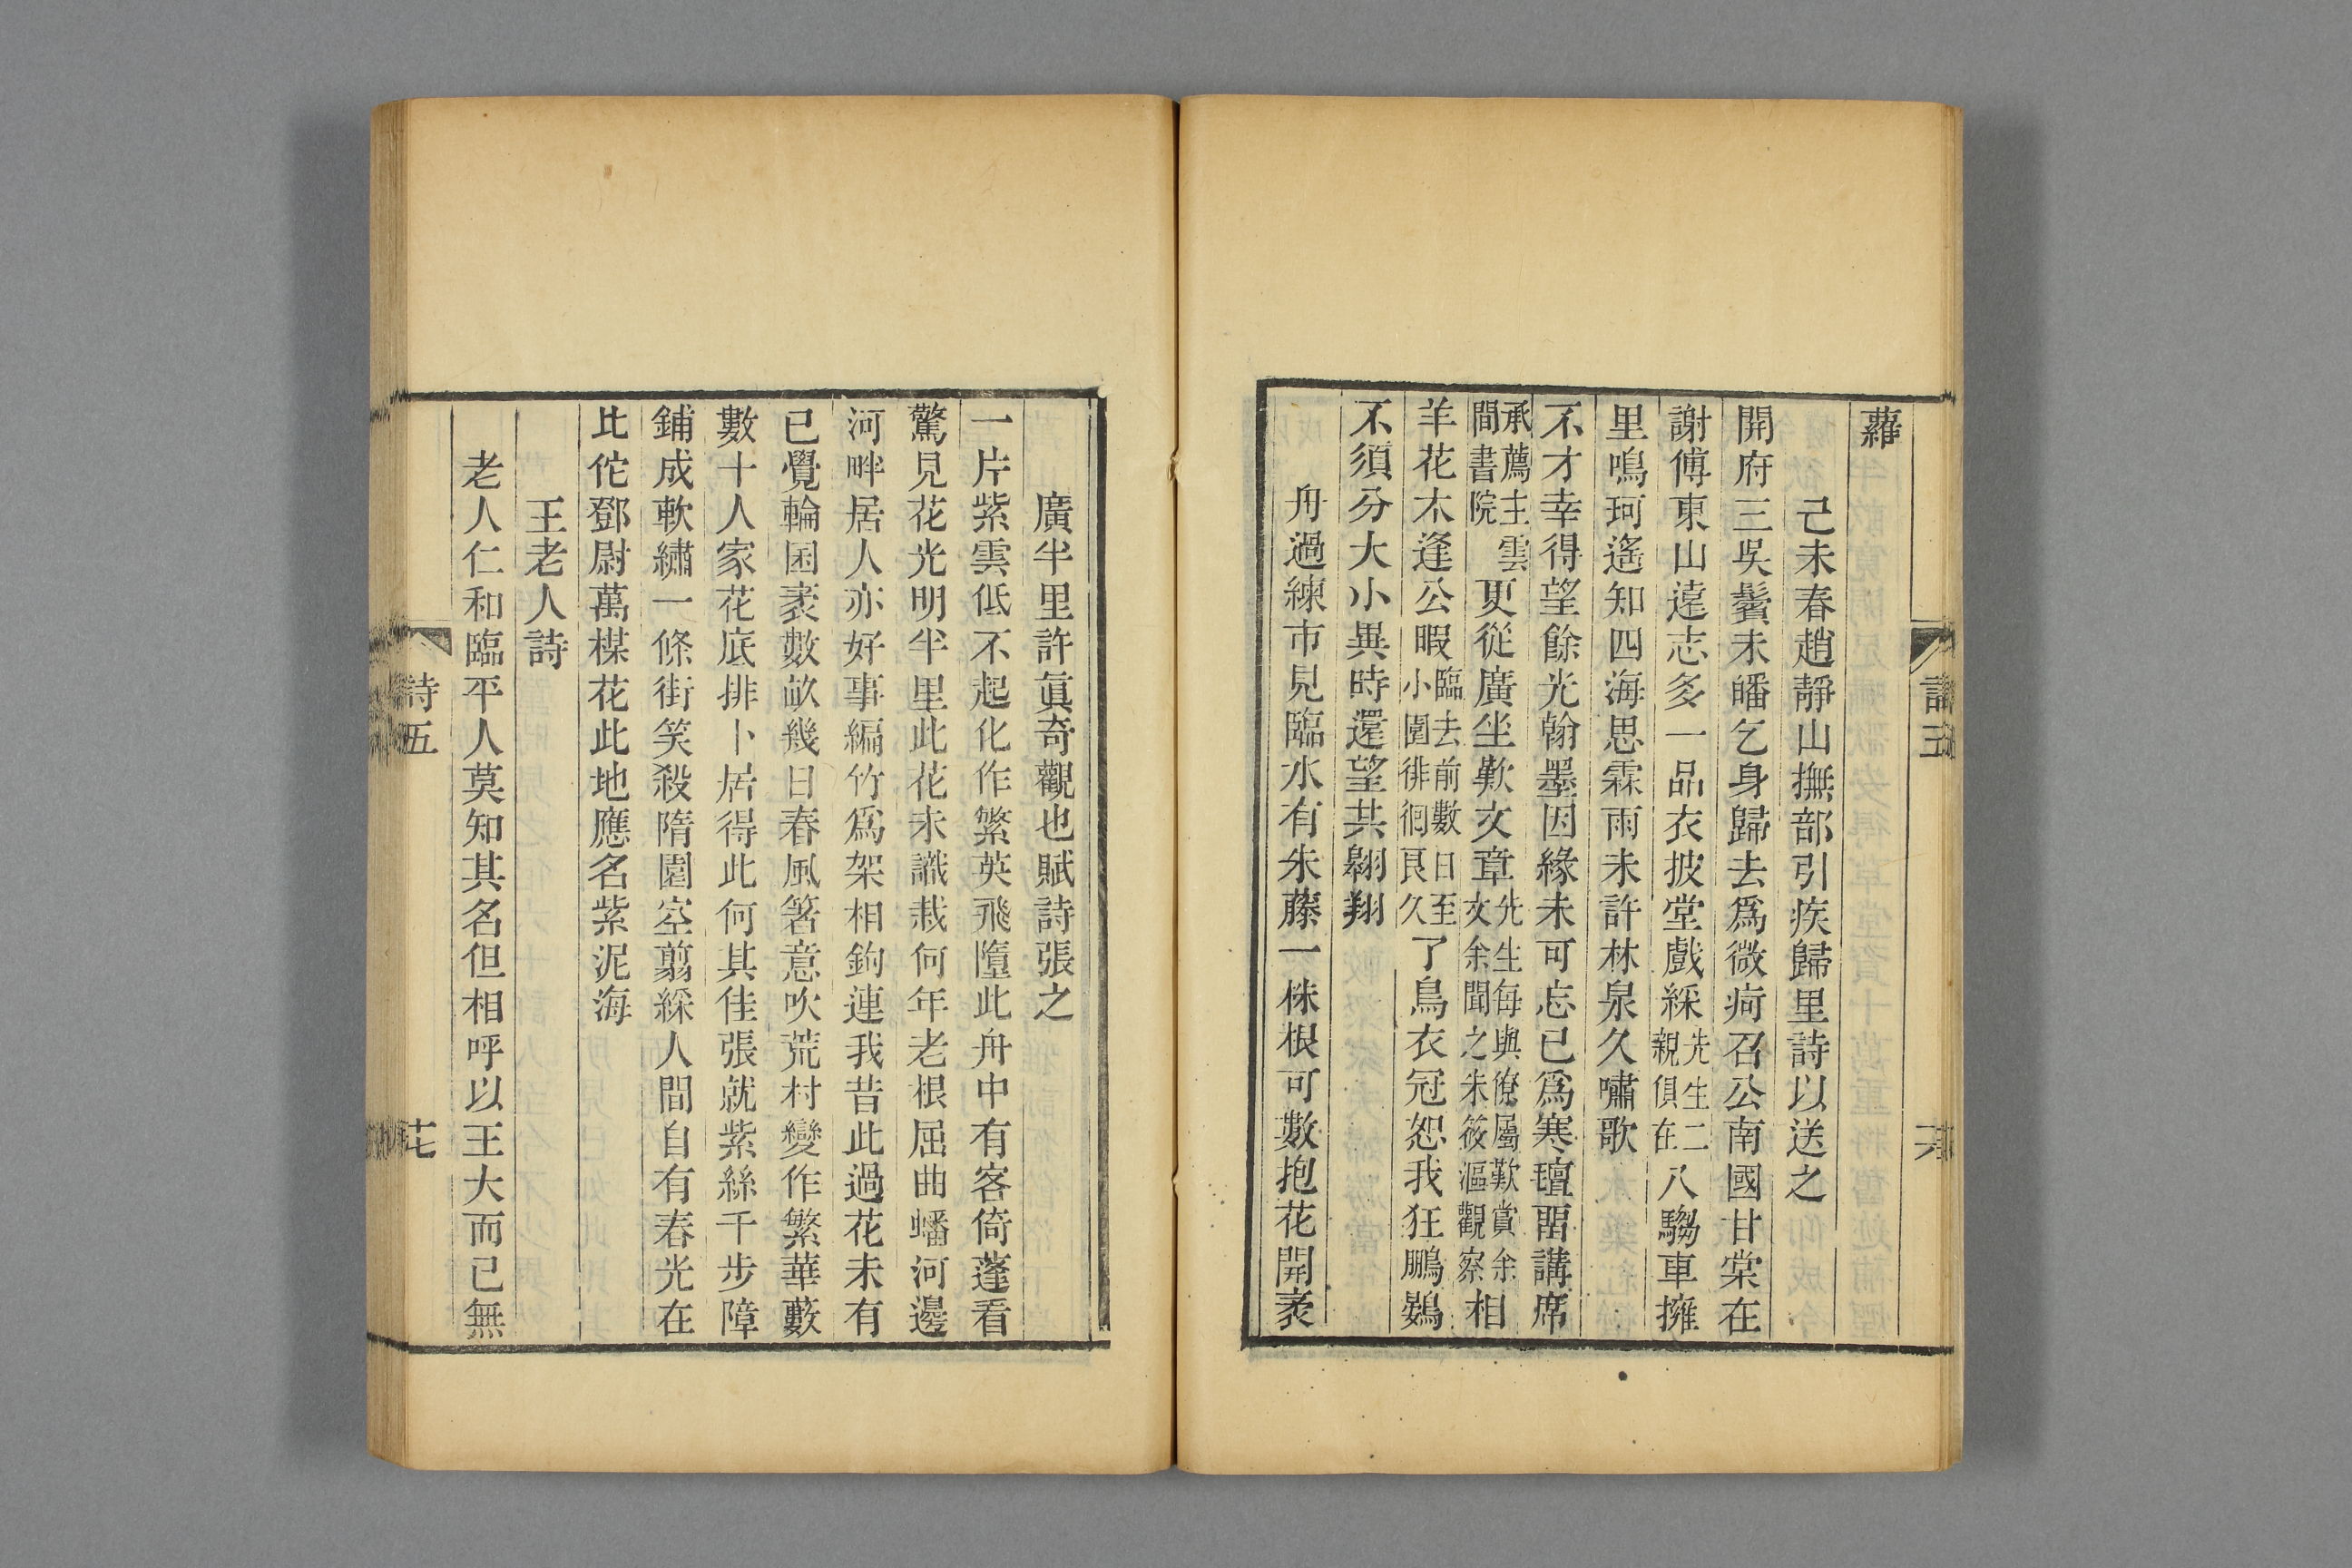 蘿
己未春趙靜山撫部引疾歸里詩以送之
開府三吳鬢未皤乞身歸去爲微疴召公南國甘棠在
謝傅東山遠志多一品衣披堂戲綵先生二親俱在八騶車擁
里鳴珂遙知四海思霖雨未許林泉久嘯歌
不才幸得望餘光翰墨因緣未可忘已爲寒氊畱講席
承薦主雲間書院更從廣坐歎文章先生每與僚屬歎賞余文余聞之朱筱漚觀察相
羊花木逢公暇臨去前數日至小園徘徊良久了鳥衣冠恕我狂鵬鷃
不須分大小異時還望共翱翔
舟過練市見臨水有朱藤一株根可數抱花開袤
詩五
廣半里許眞奇觀也賦詩張之
一片紫雲低不起化作繁英飛墮此舟中有客倚蓬看
驚見花光明半里此花未識栽何年老根屈曲蟠河邊
河畔居人亦好事編竹爲架相鉤連我昔此過花未有
已覺輪囷袤數畝幾日春風箸意吹荒村變作繁華藪
數十人家花底排卜居得此何其佳張就紫絲千步障
鋪成軟繡一條街笑殺隋園空翦綵人間自有春光在
比佗鄧尉萬楳花此地應名紫泥海
王老人詩
老人仁和臨平人莫知其名但相呼以王大而已無
詩五